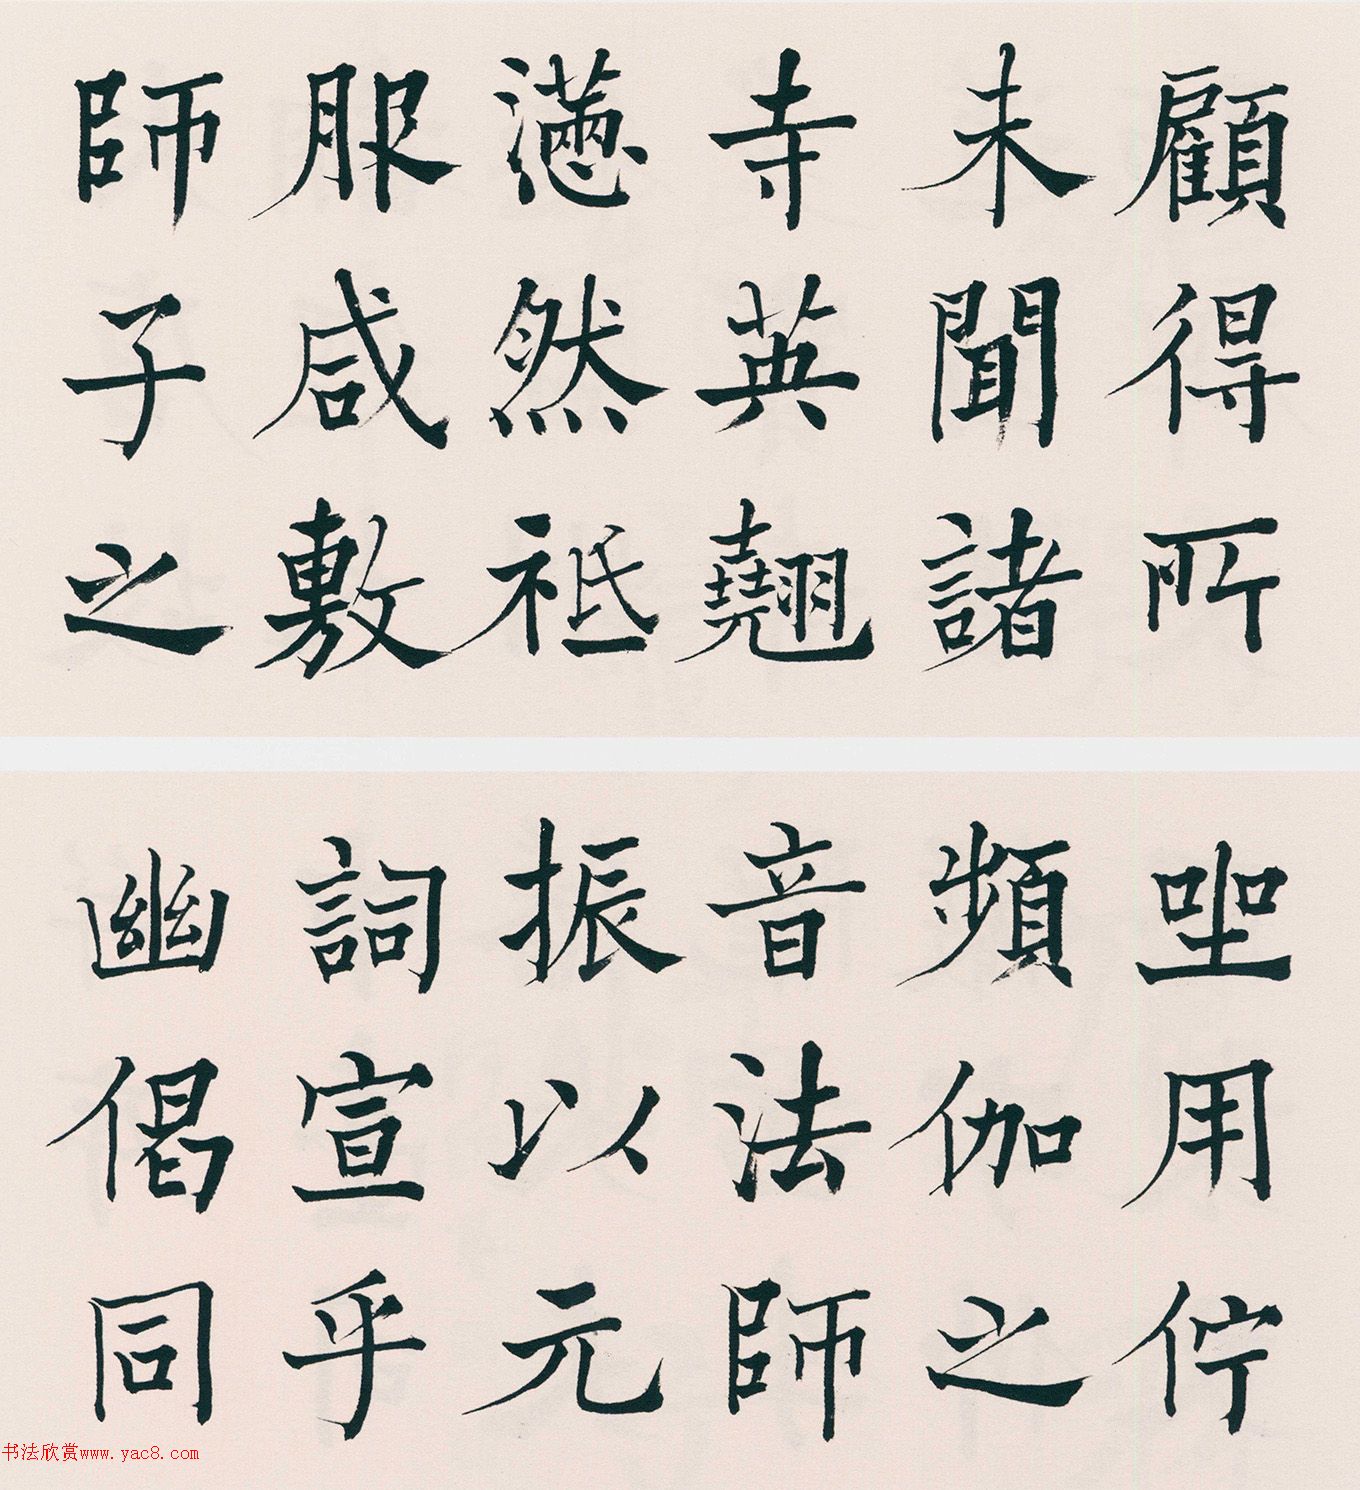 顧得所
未聞諸
寺英翹
懣然祗
服咸敷
師子之
坐用佇
頻伽之
音法師
振以元
詞宣乎
幽偈同
书法欣赏www.yac8.com